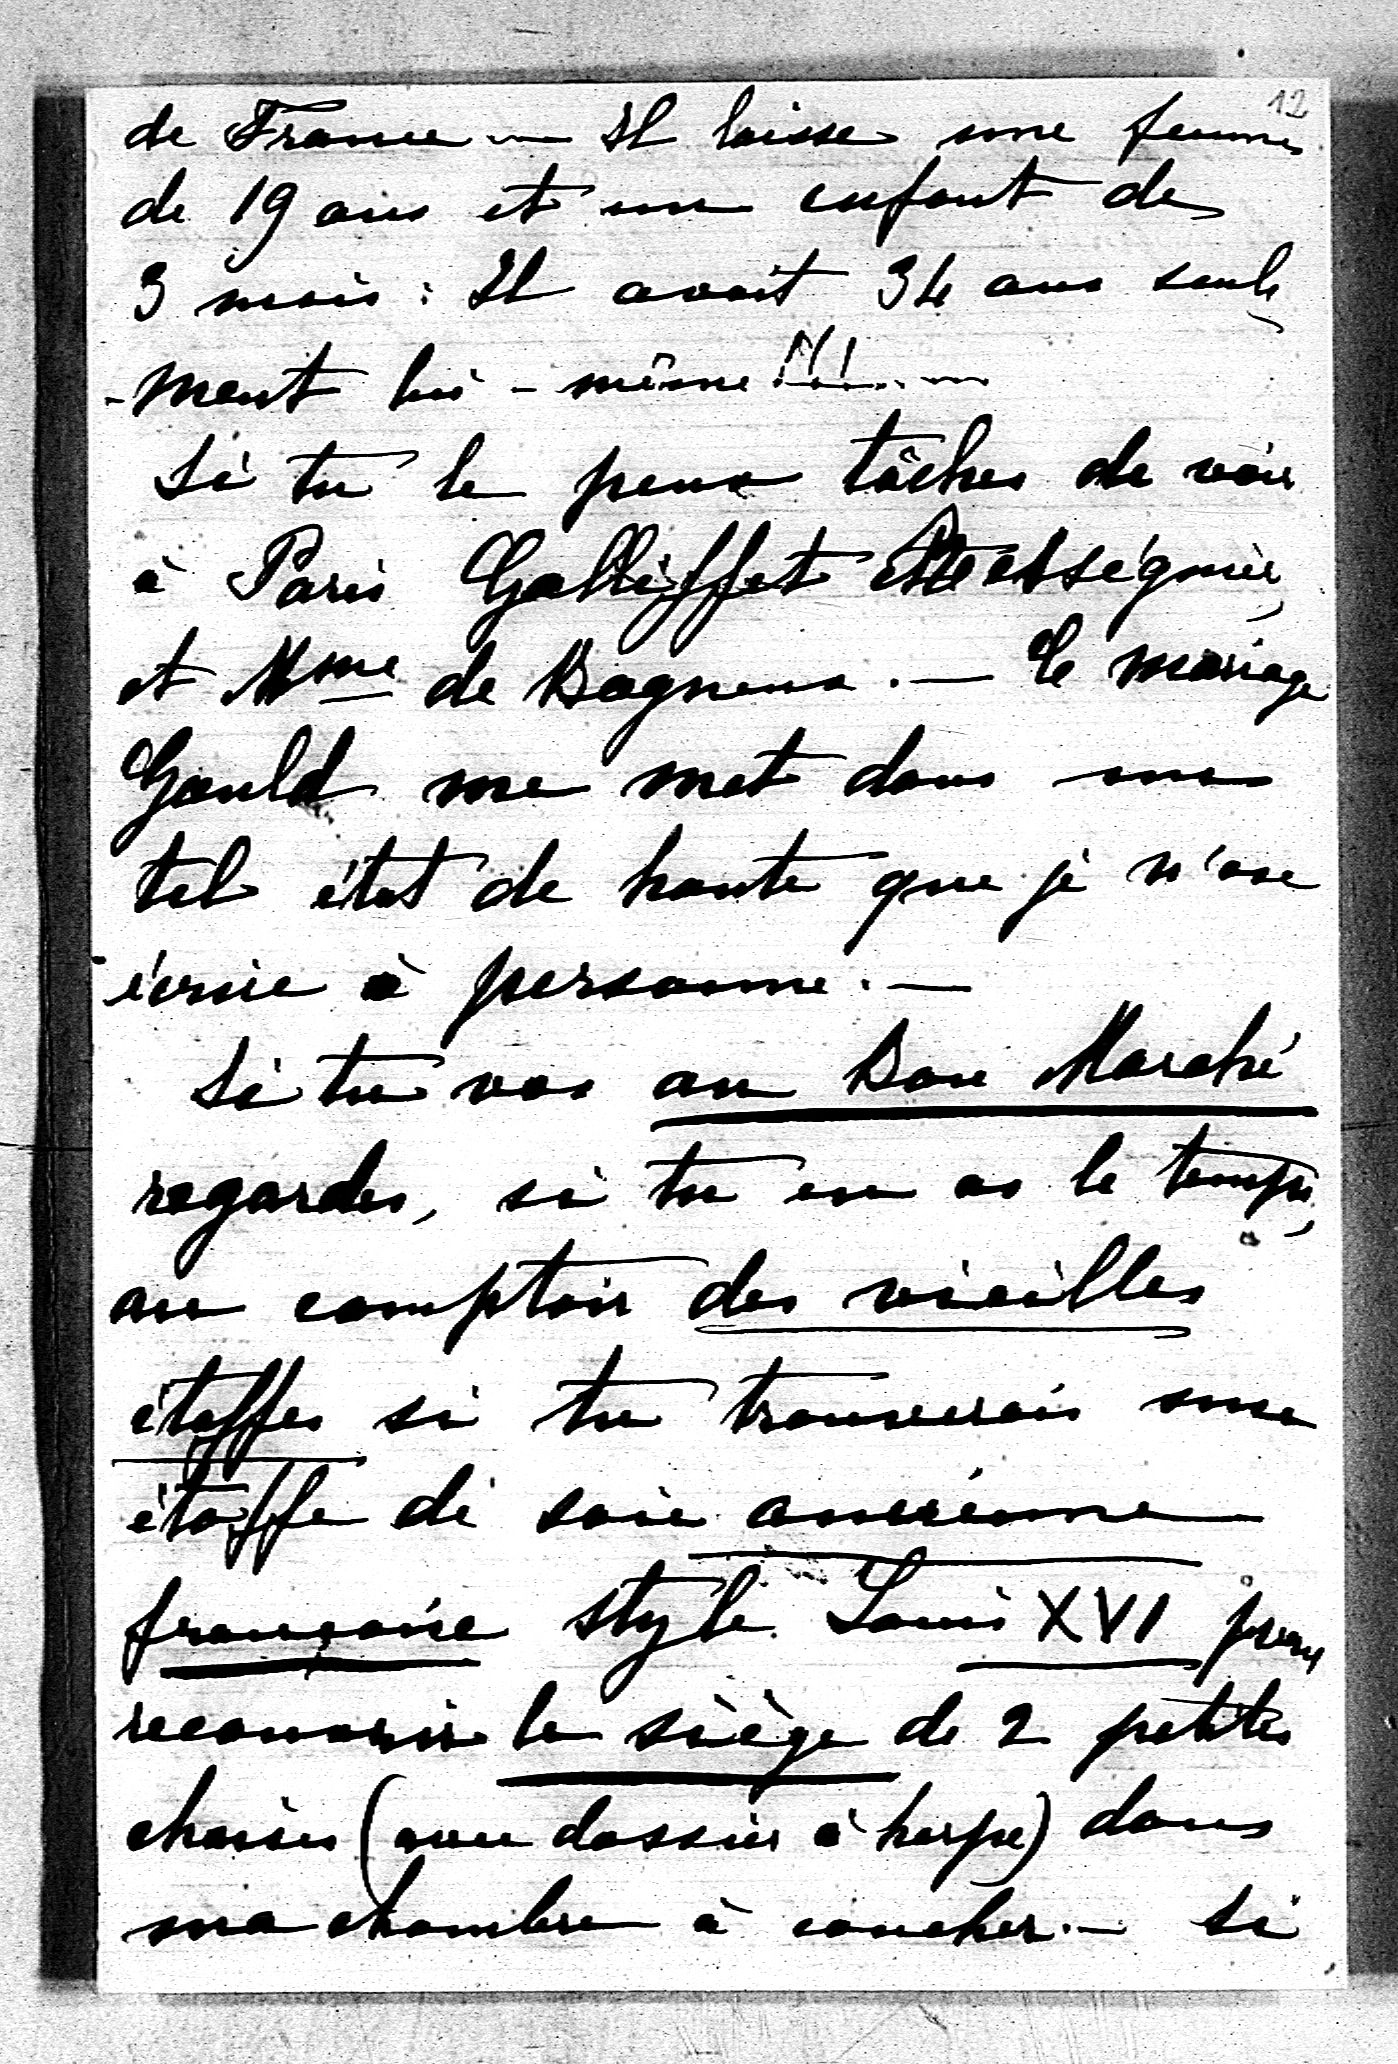 12
de France — Il laisse une femme
de 19 ans et un enfant de
3 mois : Il avait 34 ans seule
-ment lui-même !!! ..—
Si tu le peux tâches de voir
à Paris Galliffet et Rességuier,
et Mme de Bagneux. — Le mariage
Gould me met dans un
tel état de honte que je n'ose
écrire à personne. —
Si tu vas au Bon Marché
regardes, si tu en as le temps,
au comptoir des vieilles
étoffes si tu trouverais une
étoffe de soie ancienne
française style Louis XVI pour
recouvrir le siège de 2 petites
chaises (avec dossier à harpe) dans
ma chambre à coucher. — Si